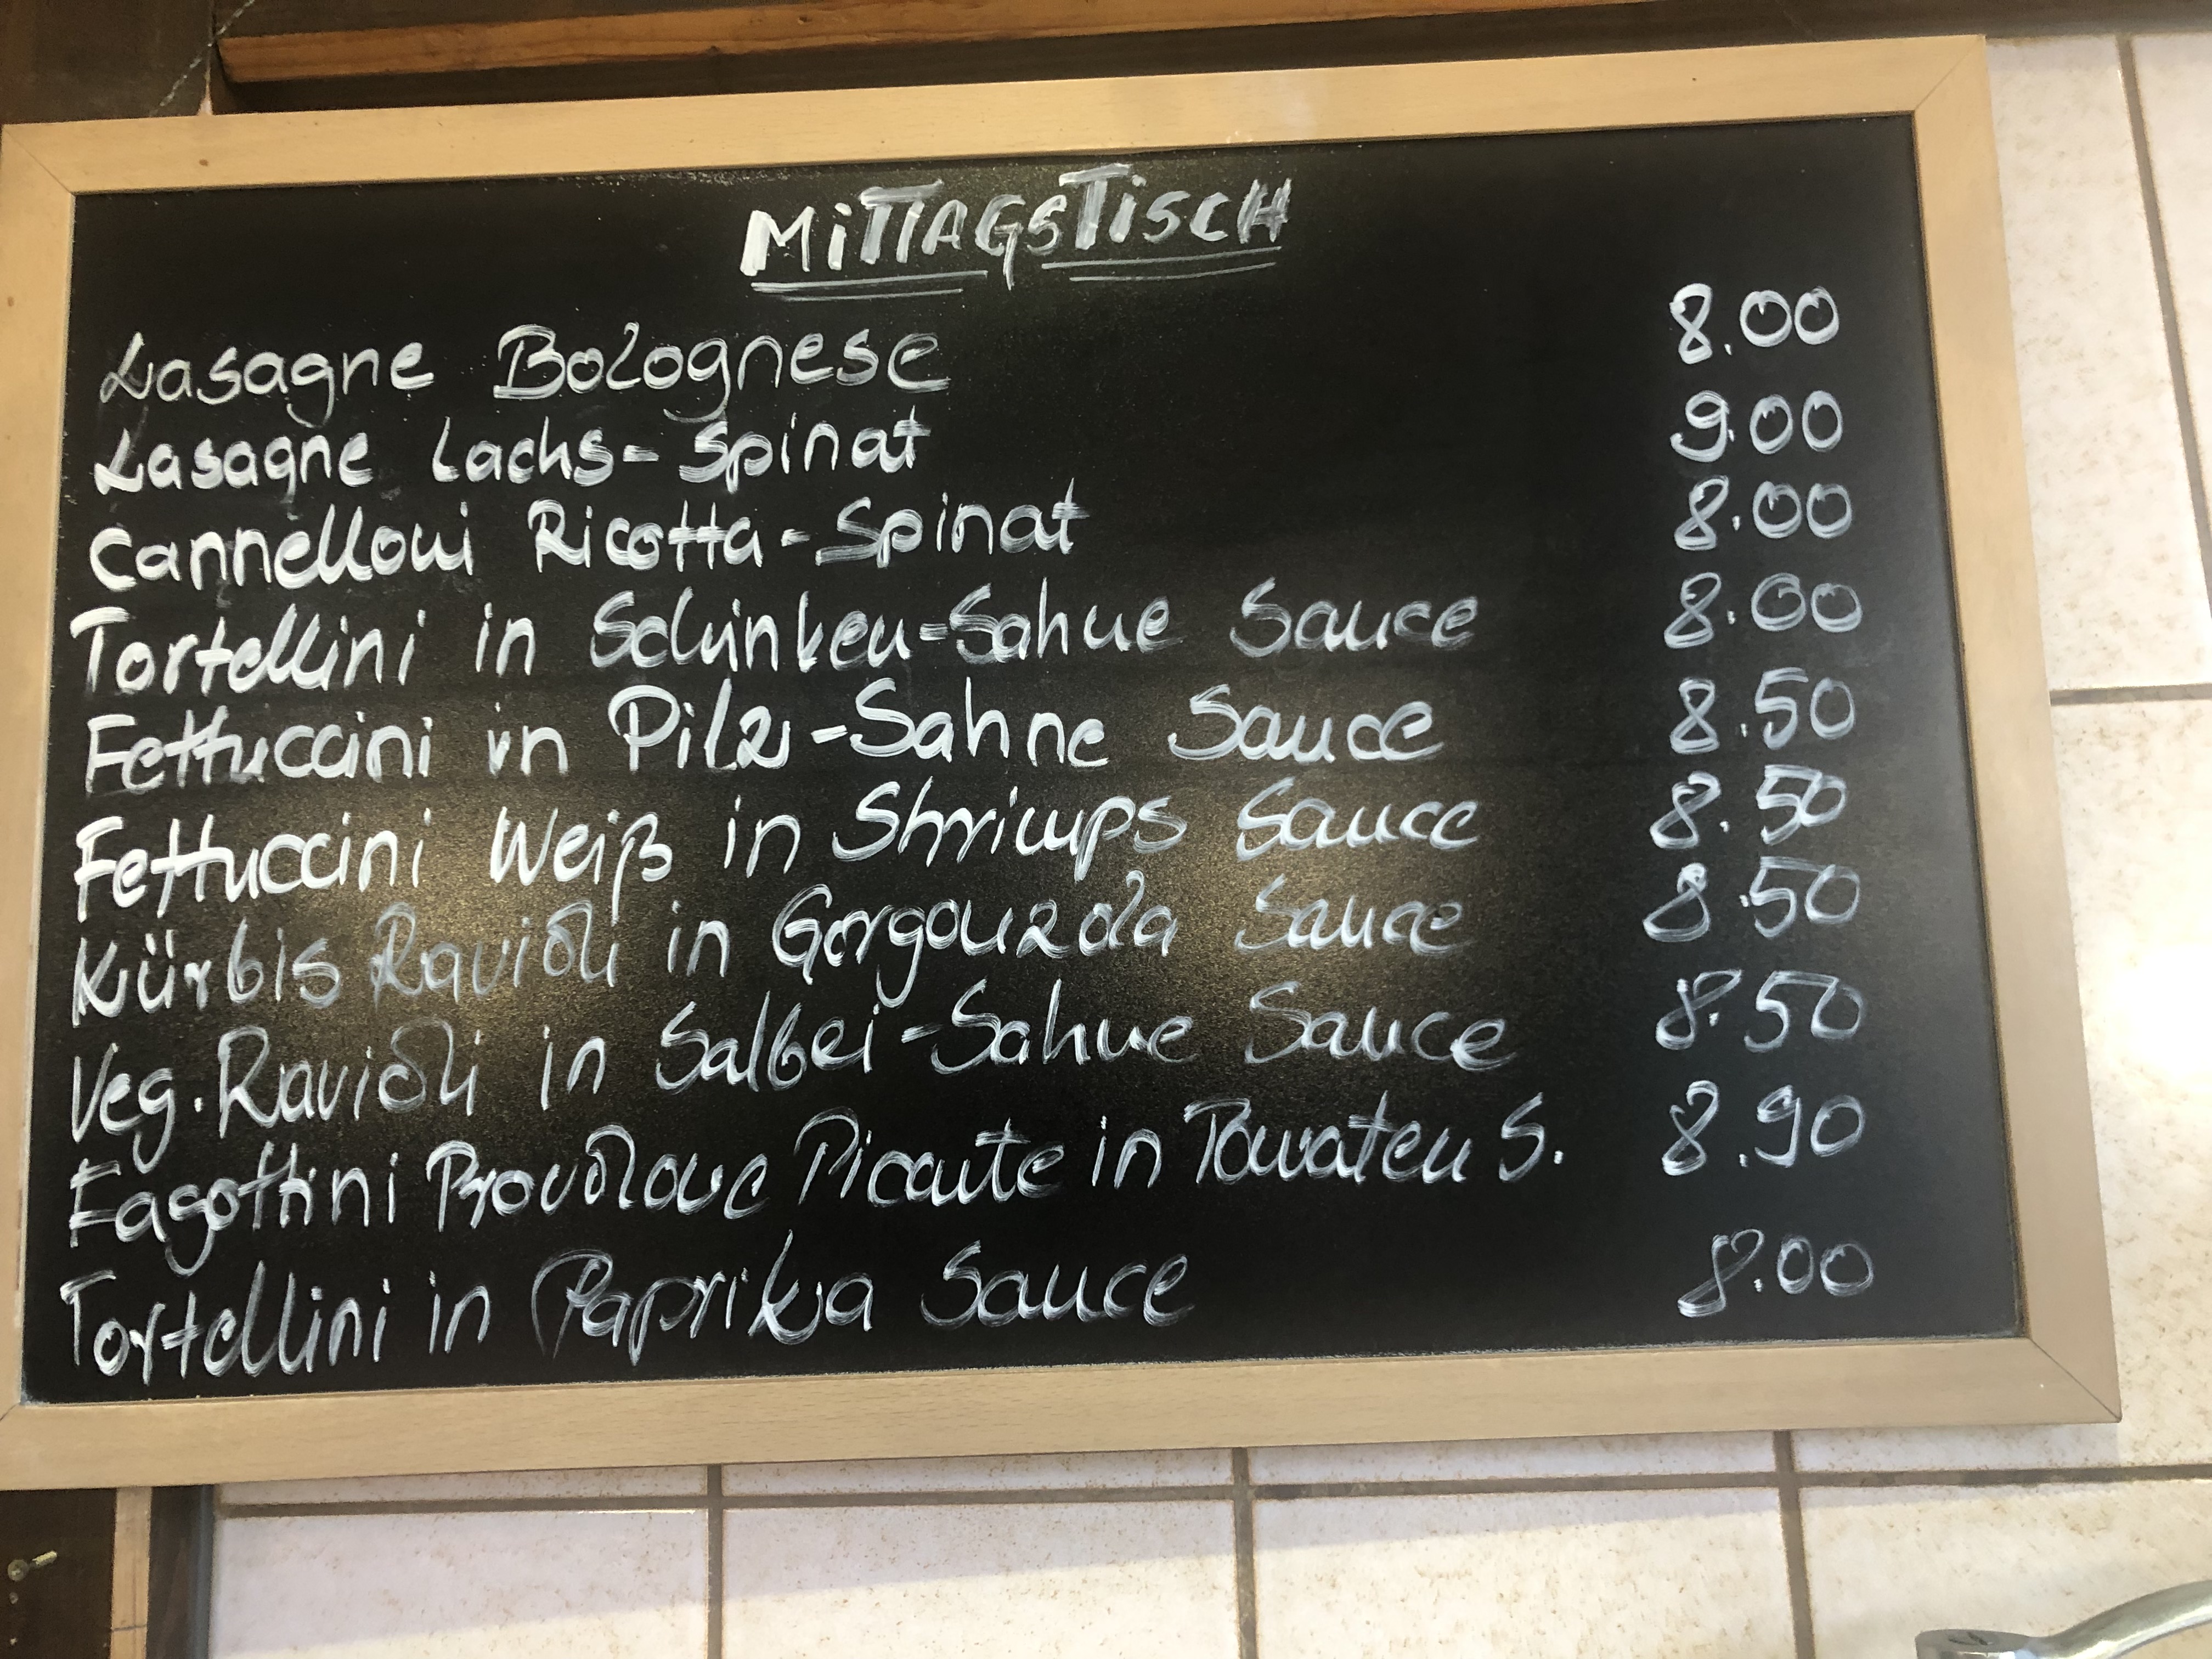 MiTTAGSTISCH
Lasagne Bolognese 8.00
Lasagne Lachs-Spinat 9.00
Cannelloni Ricotta-Spinat 8.00
Tortellini in Schinken-Sahne Sauce 8.00
Fettuccini in Pilz-Sahne Sauce 8.50
Fettuccini Weiß in Shrimps Sauce 8.50
Kürbis Ravioli in Gorgonzola Sauce 8.50
Veg. Ravioli in Salbei-Sahne Sauce 8.50
Fagottini Provolone Picante in Tomaten S. 8.90
Tortellini in Paprika Sauce 8.00